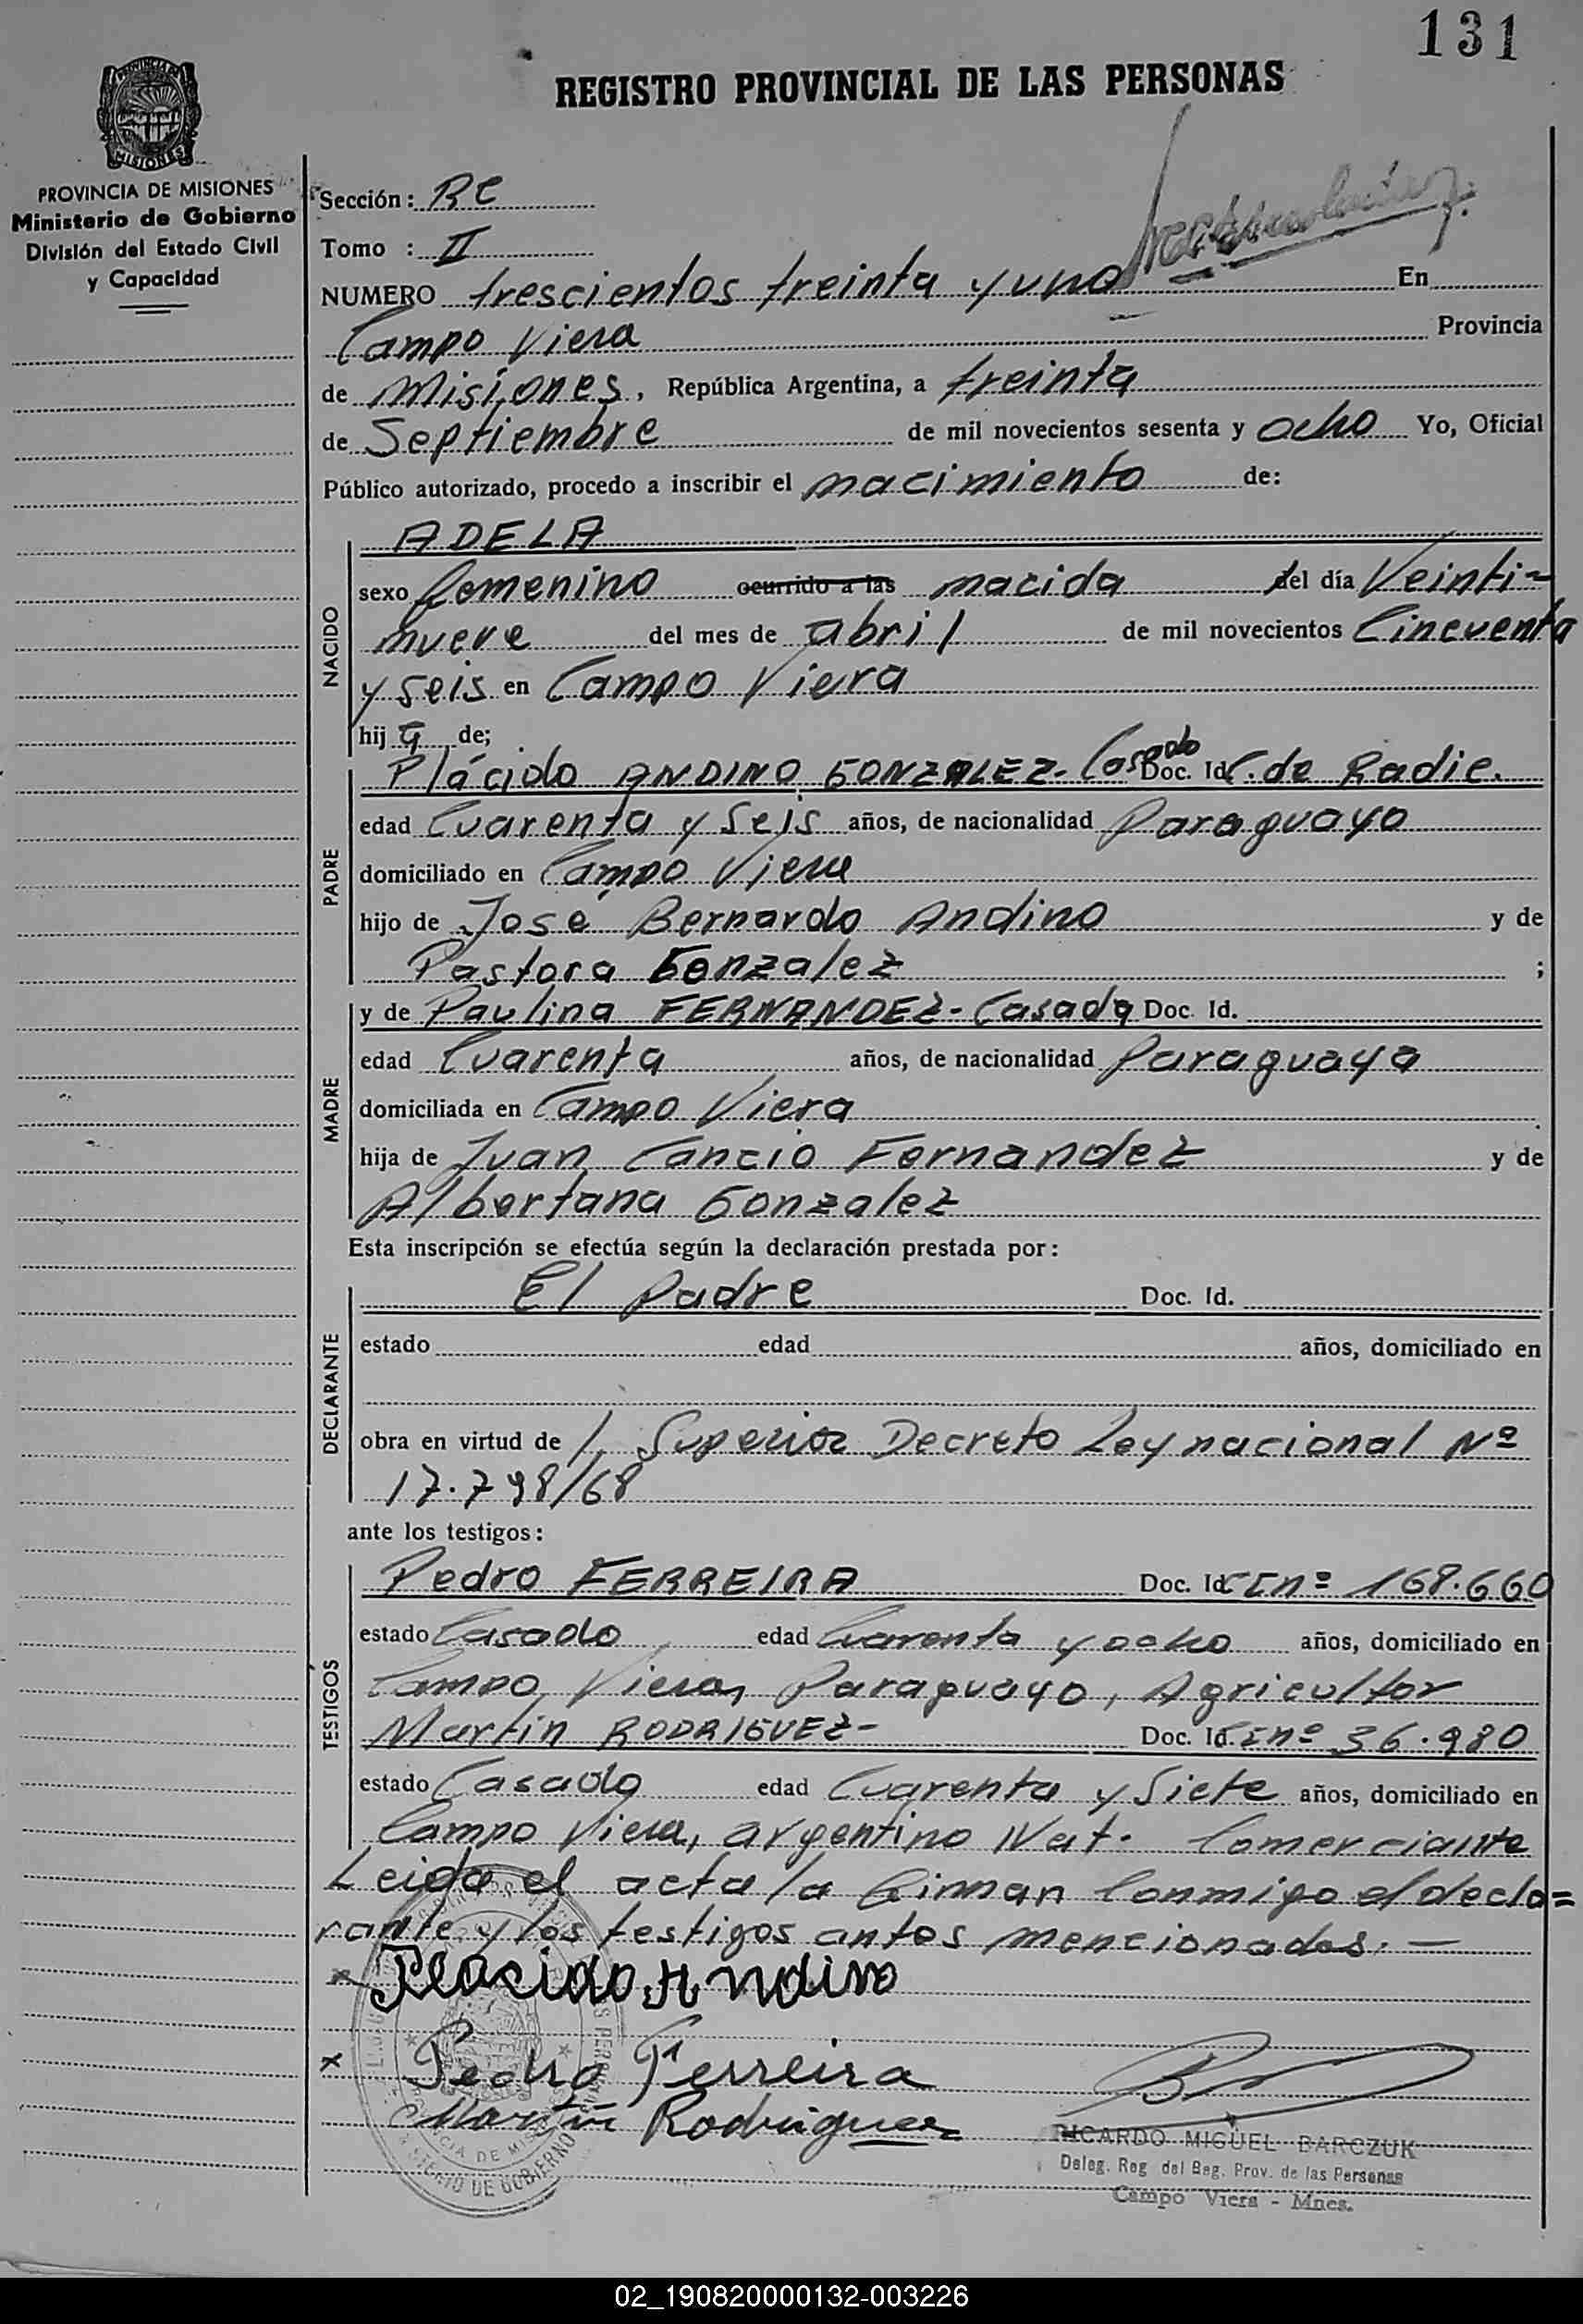 131
REGISTRO PROVINCIAL DE LAS PERSONAS
PROVINCIA DE
MISIONES
PROVINCIA DE MISIONES
Ministerio de Gobierno
División del Estado Civil
y Capacidad
Sección: RC
Tomo : II
NUMERO trescientos treinta y uno En
Campo Viera Provincia
de Misiones, República Argentina, a treinta
de Septiembre de mil novecientos sesenta y ocho Yo, Oficial
Público autorizado, procedo a inscribir el nacimiento de:
NACIDO
ADELA
sexo femenino ocurrido a las nacida del día Veinti=
nueve del mes de abril de mil novecientos Cincuenta
y seis en Campo Viera
hija de;
PADRE
Plácido ANDINO GONZALEZ- Casado Doc. Id C. de Radic.
edad Cuarenta y Seis años, de nacionalidad Paraguayo
domiciliado en Campo Viera
hijo de José Bernardo Andino y de
Pastora Gonzalez ;
MADRE
y de Paulina FERNANDEZ- Casada Doc. Id.
edad Cuarenta años, de nacionalidad Paraguaya
domiciliada en Campo Viera
hija de Juan Cancio Fernandez y de
Albertana Gonzalez
Esta inscripción se efectúa según la declaración prestada por:
DECLARANTE
El Padre Doc. Id.
estado edad años, domiciliado en
obra en virtud de Superior Decreto Ley nacional Nº
17.798/68
ante los testigos:
TESTIGOS
Pedro FERREIRA Doc. Id CI nº 168.660
estado Casado edad Cuarenta y ocho años, domiciliado en
Campo Viera, Paraguayo, Agricultor
Martin RODRIGUEZ- Doc. Id. CI nº 36.980
estado Casado edad Cuarenta y Siete años, domiciliado en
Campo Viera, argentino Nat. Comerciante
Leida el acta la firman Conmigo el decla=
rante y los testigos antes mencionados. —
x Placido Andino
x Pedro Ferreira
Martin Rodriguez
RICARDO MIGUEL BARCZUK
Deleg. Reg. del Reg. Prov. de las Personas
Campo Viera - Mnes.
02_190820000132-003226